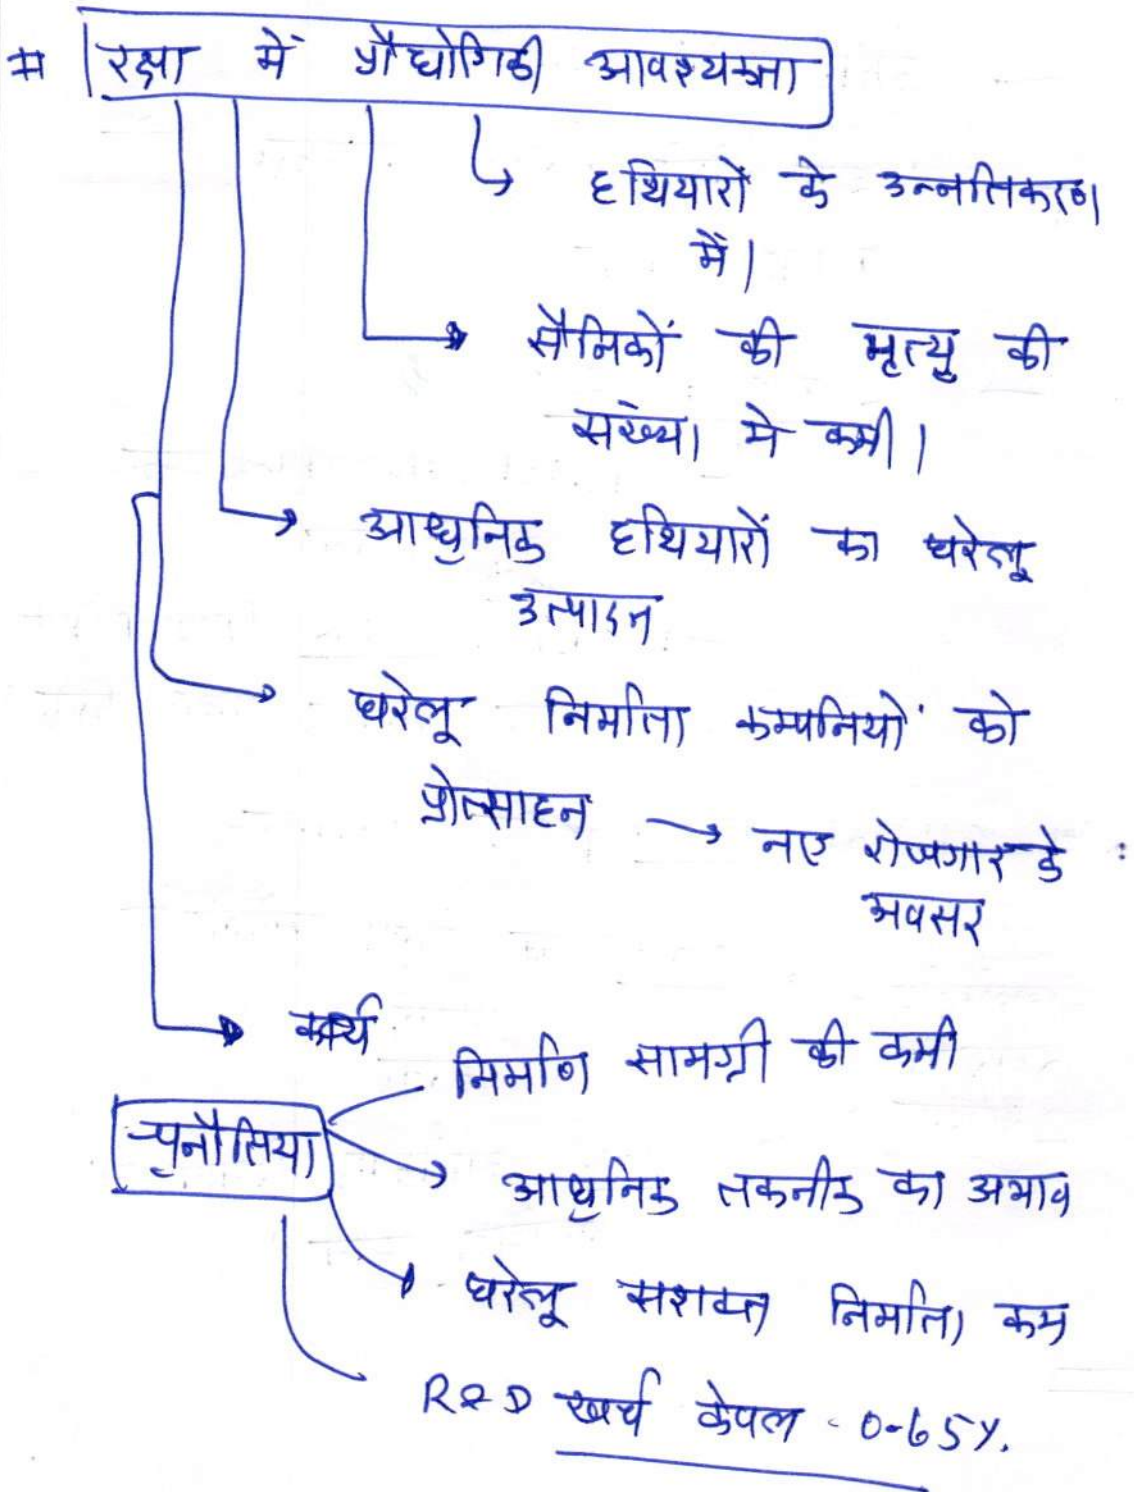 # रक्षा में प्रौद्योगिकी आवश्यकता
हथियारों के उन्नतिकरण
में।
सैनिकों की मृत्यु की
संख्या मे कमी।
आधुनिक हथियारों का घरेलू
उत्पादन
घरेलू निर्माता कम्पनियों को
प्रोत्साहन → नए रोजगार के
अवसर
कार्य
निर्माण सामग्री की कमी
चुनौतिया
आधुनिक तकनीक का अभाव
घरेलू सशक्त निर्माता कम
R&D खर्च केवल 0.65%.